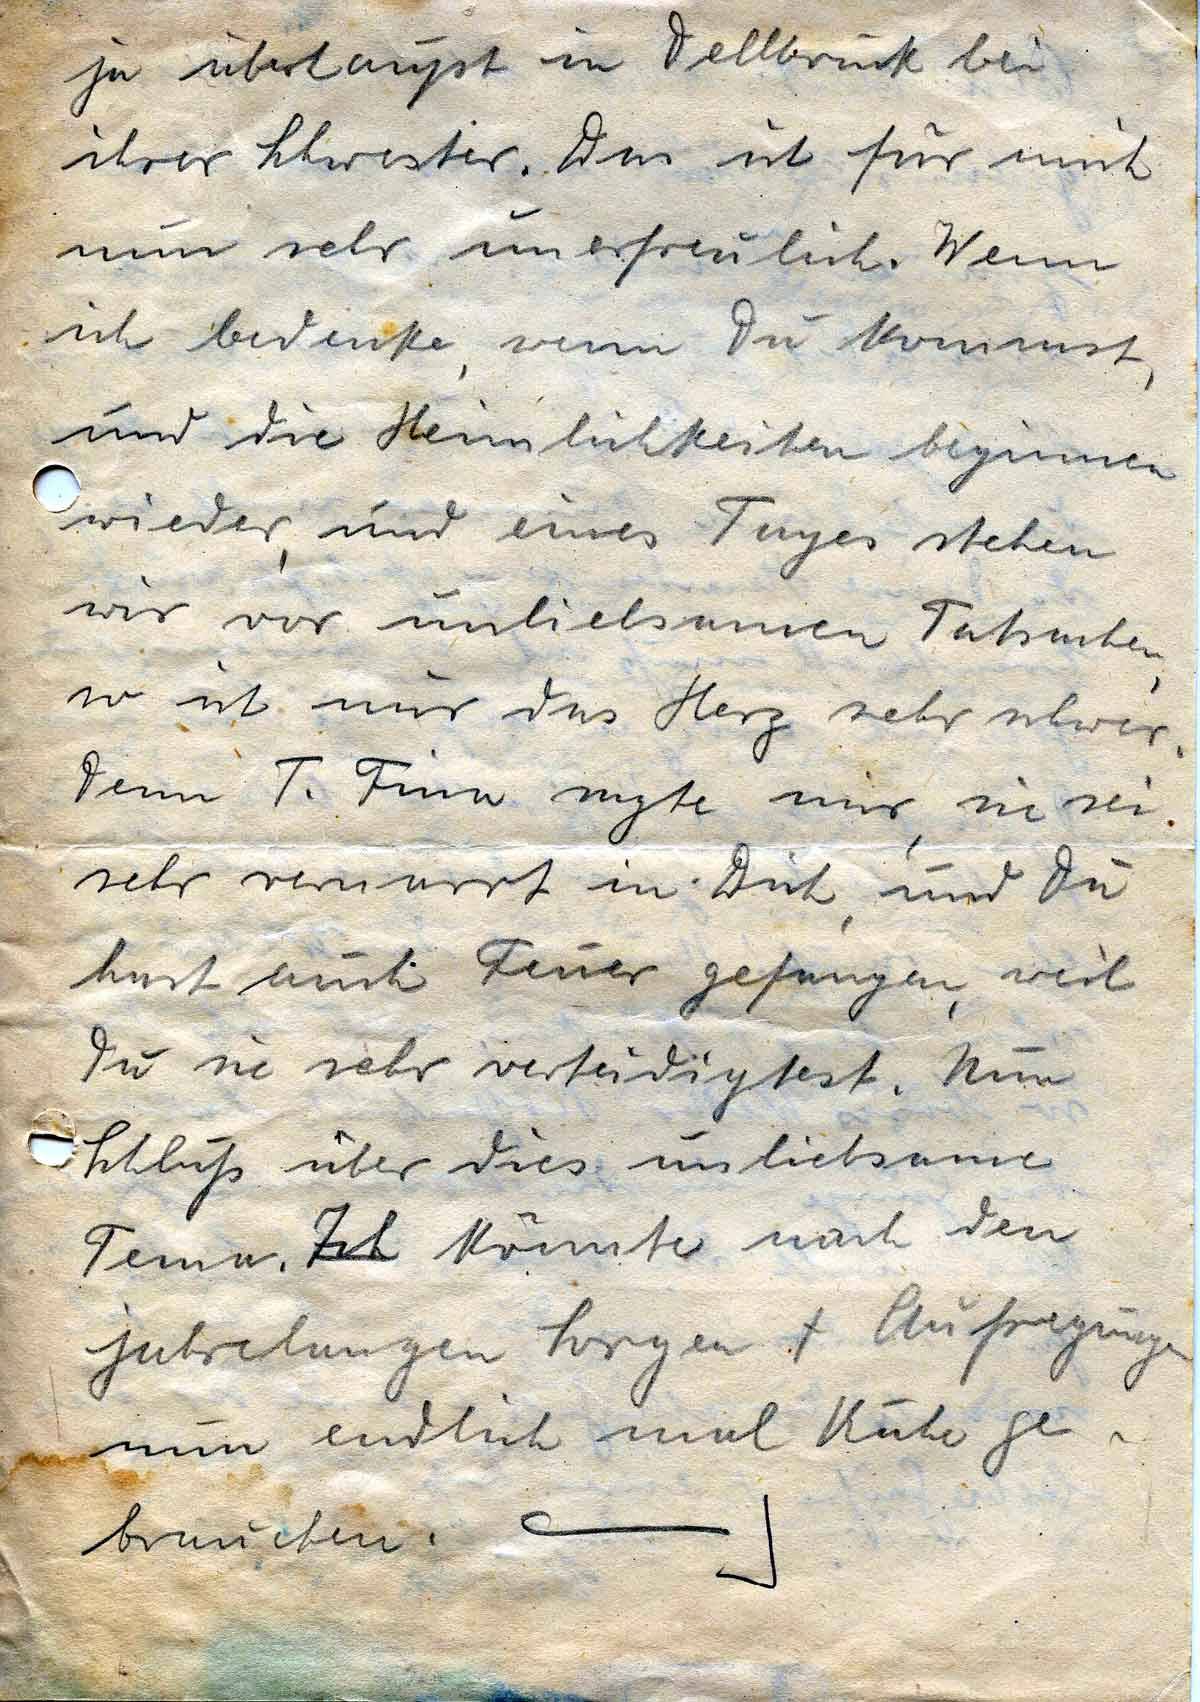 ja überhaupt in Dellbrück bei
ihrer Schwester. Das ist für mich
nun sehr unerfreulich. Wenn
ich bedenke, wenn Du kommst,
und die Heimlichkeiten beginnen
wieder, und eines Tages stehen
wir vor unliebsamen Tatsachen,
so ist mir das Herz sehr schwer.
Denn T. Finn sagte mir, sie sei
sehr vernarrt in Dich, und Du
hast auch Feuer gefangen, weil
Du sie sehr verteidigtest. Nun
Schluß über dies unliebsame
Tema. Ich könnte nach den
jahrelangen Sorgen + Aufregungen
nun endlich mal Ruhe ge-
brauchen.